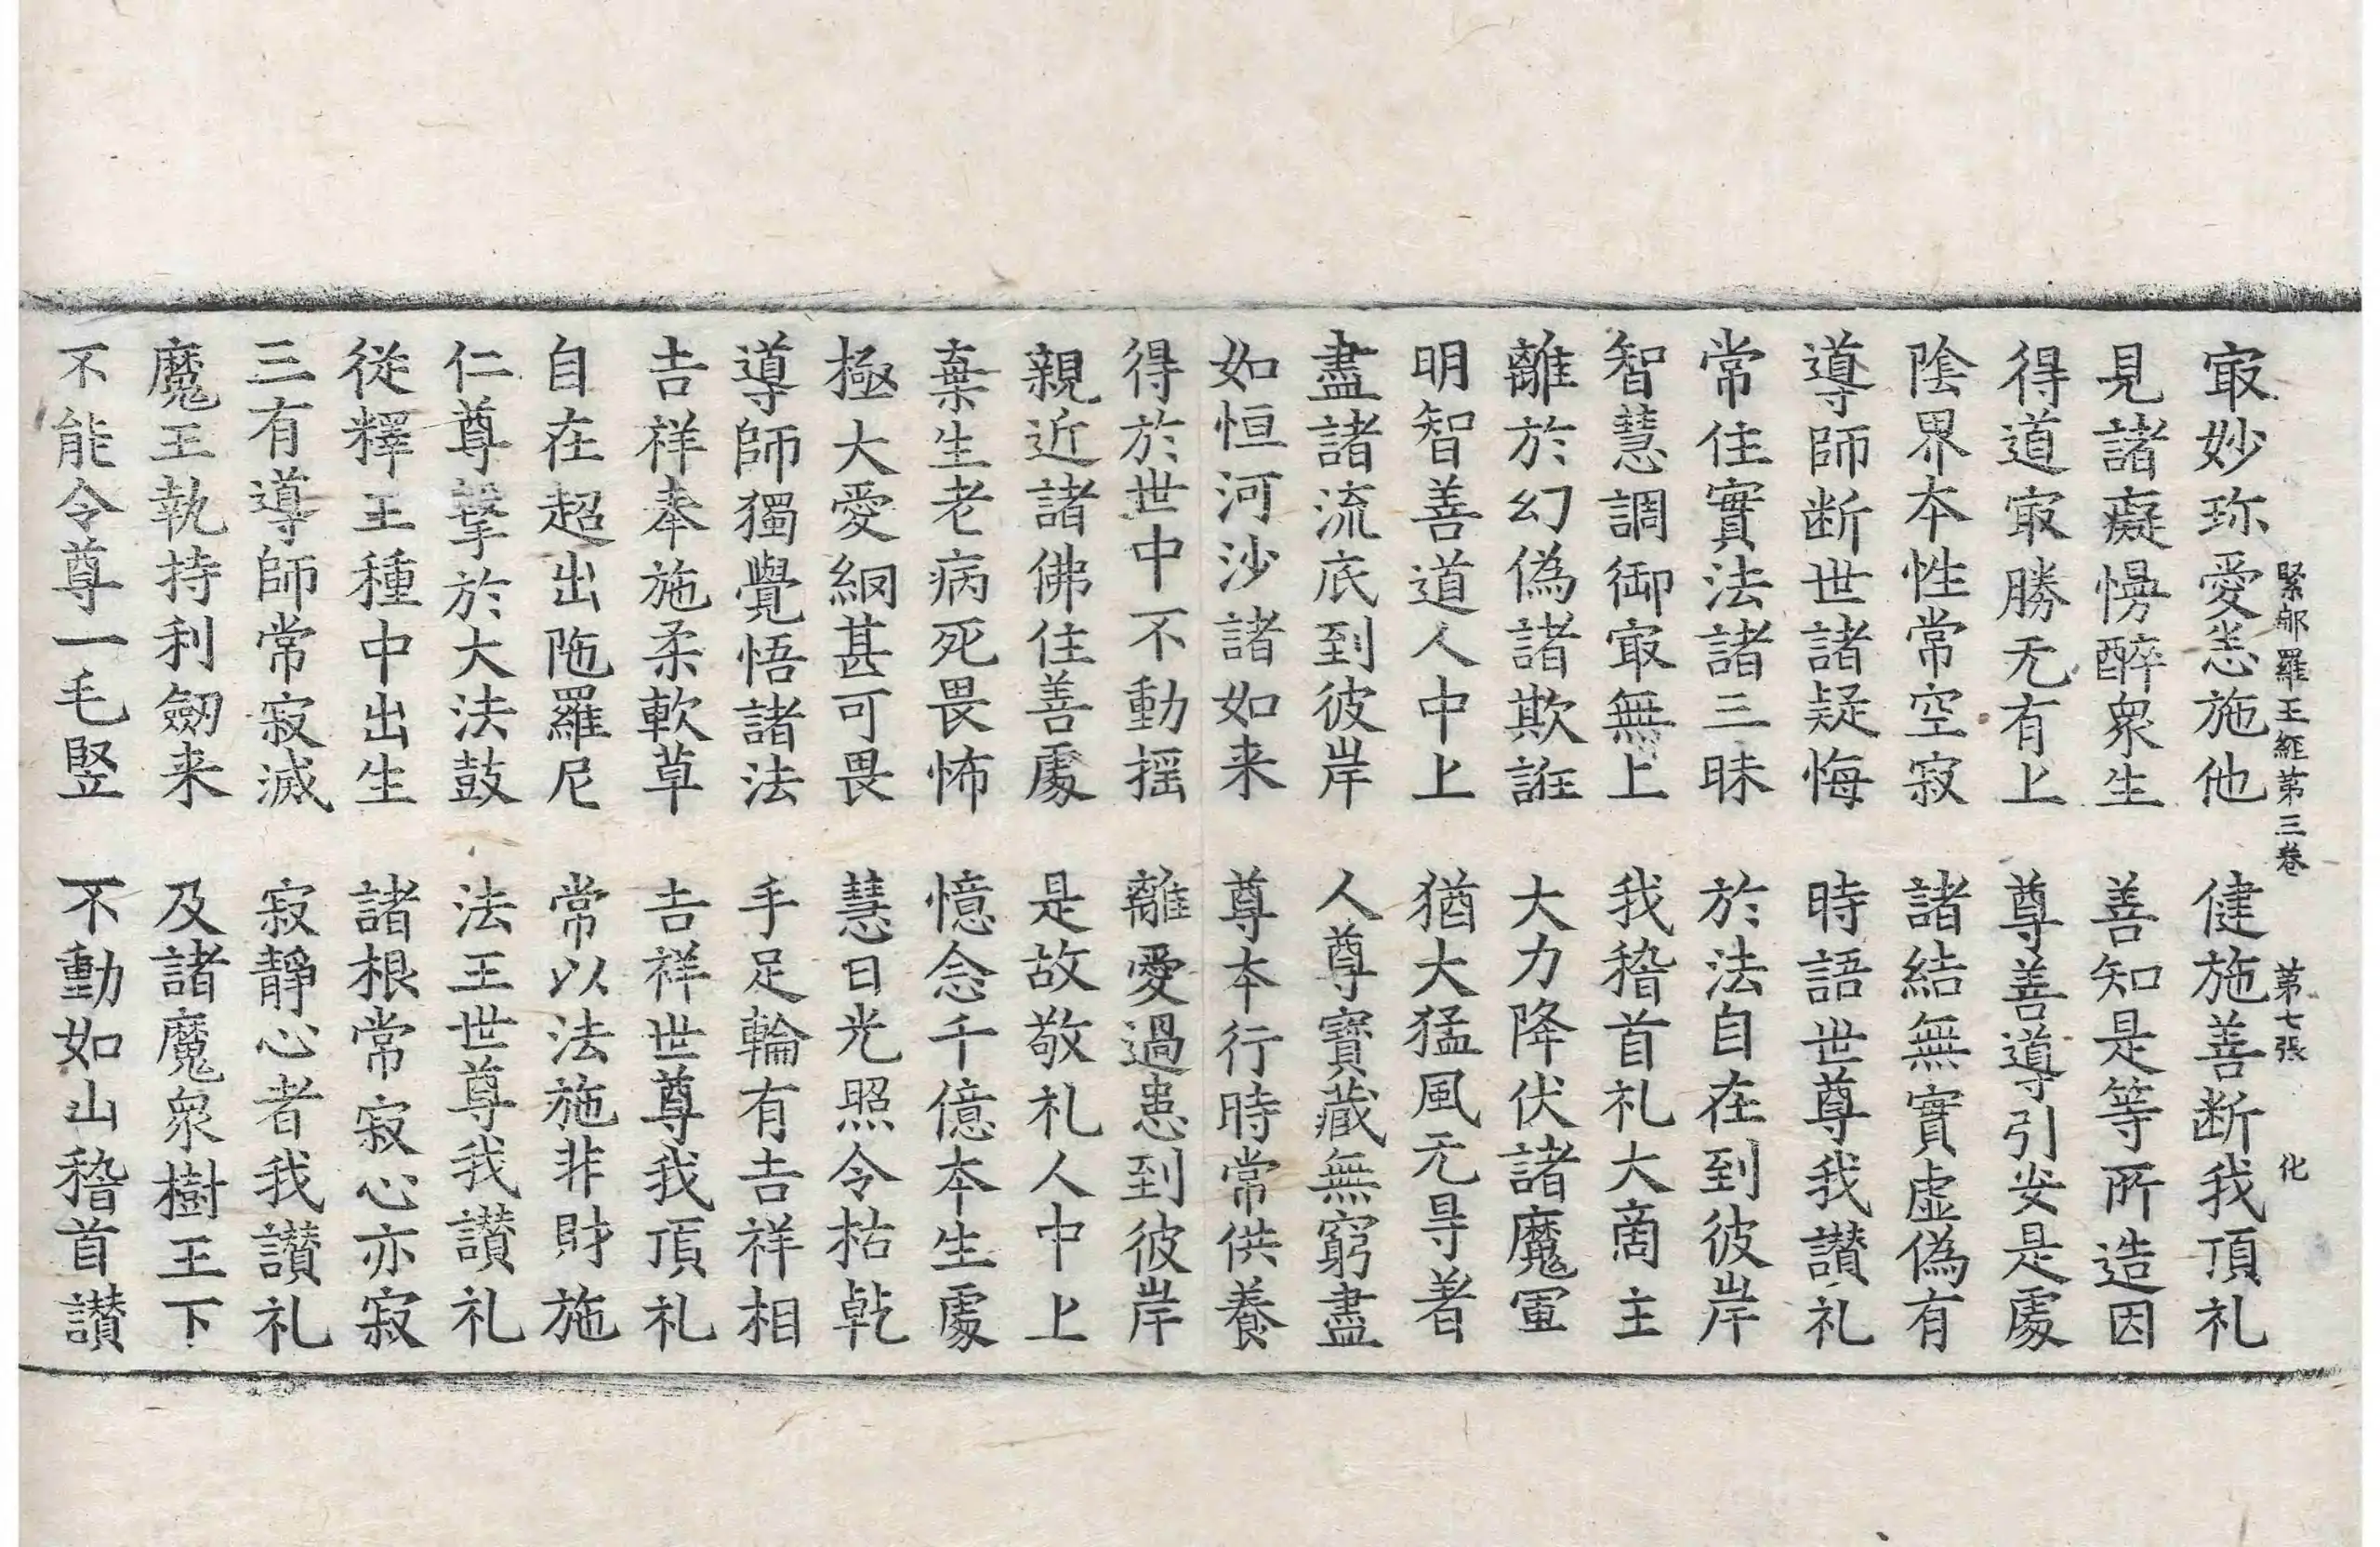 緊那羅王經第三卷　第七張　化
㝡妙珎愛恙施他　健施善断我頂礼
見諸癡慢醉衆生　善知是等所造因
得道㝡勝无有上　尊善導引安是處
陰界本性常空寂　諸結無實虚偽有
導師断世諸疑悔　時語世尊我讃礼
常住實法諸三昧　於法自在到彼岸
智慧調御㝡無上　我稽首礼大商主
離於幻偽諸欺誑　大力降伏諸魔軍
明智善道人中上　猶大猛風无㝵者
盡諸流底到彼岸　人尊寳藏無窮盡
如恒河沙諸如来　尊本行時常供養
得於世中不動揺　離愛過患到彼岸
親近諸佛住善處　是故敬礼人中上
棄生老病死畏怖　憶念千億本生處
極大愛綱甚可畏　慧日光照令枯乾
導師獨覺悟諸法　手足輪有吉祥相
吉祥奉施柔軟草　吉祥世尊我頂礼
自在超出陁羅尼　常以法施非財施
仁尊擊於大法鼓　法王世尊我讃礼
從釋王種中出生　諸根常寂心亦寂
三有導師常寂滅　寂靜心者我讃礼
魔王執持利劒来　及諸魔衆樹王下
不能令尊一毛竪　不動如山稽首讃